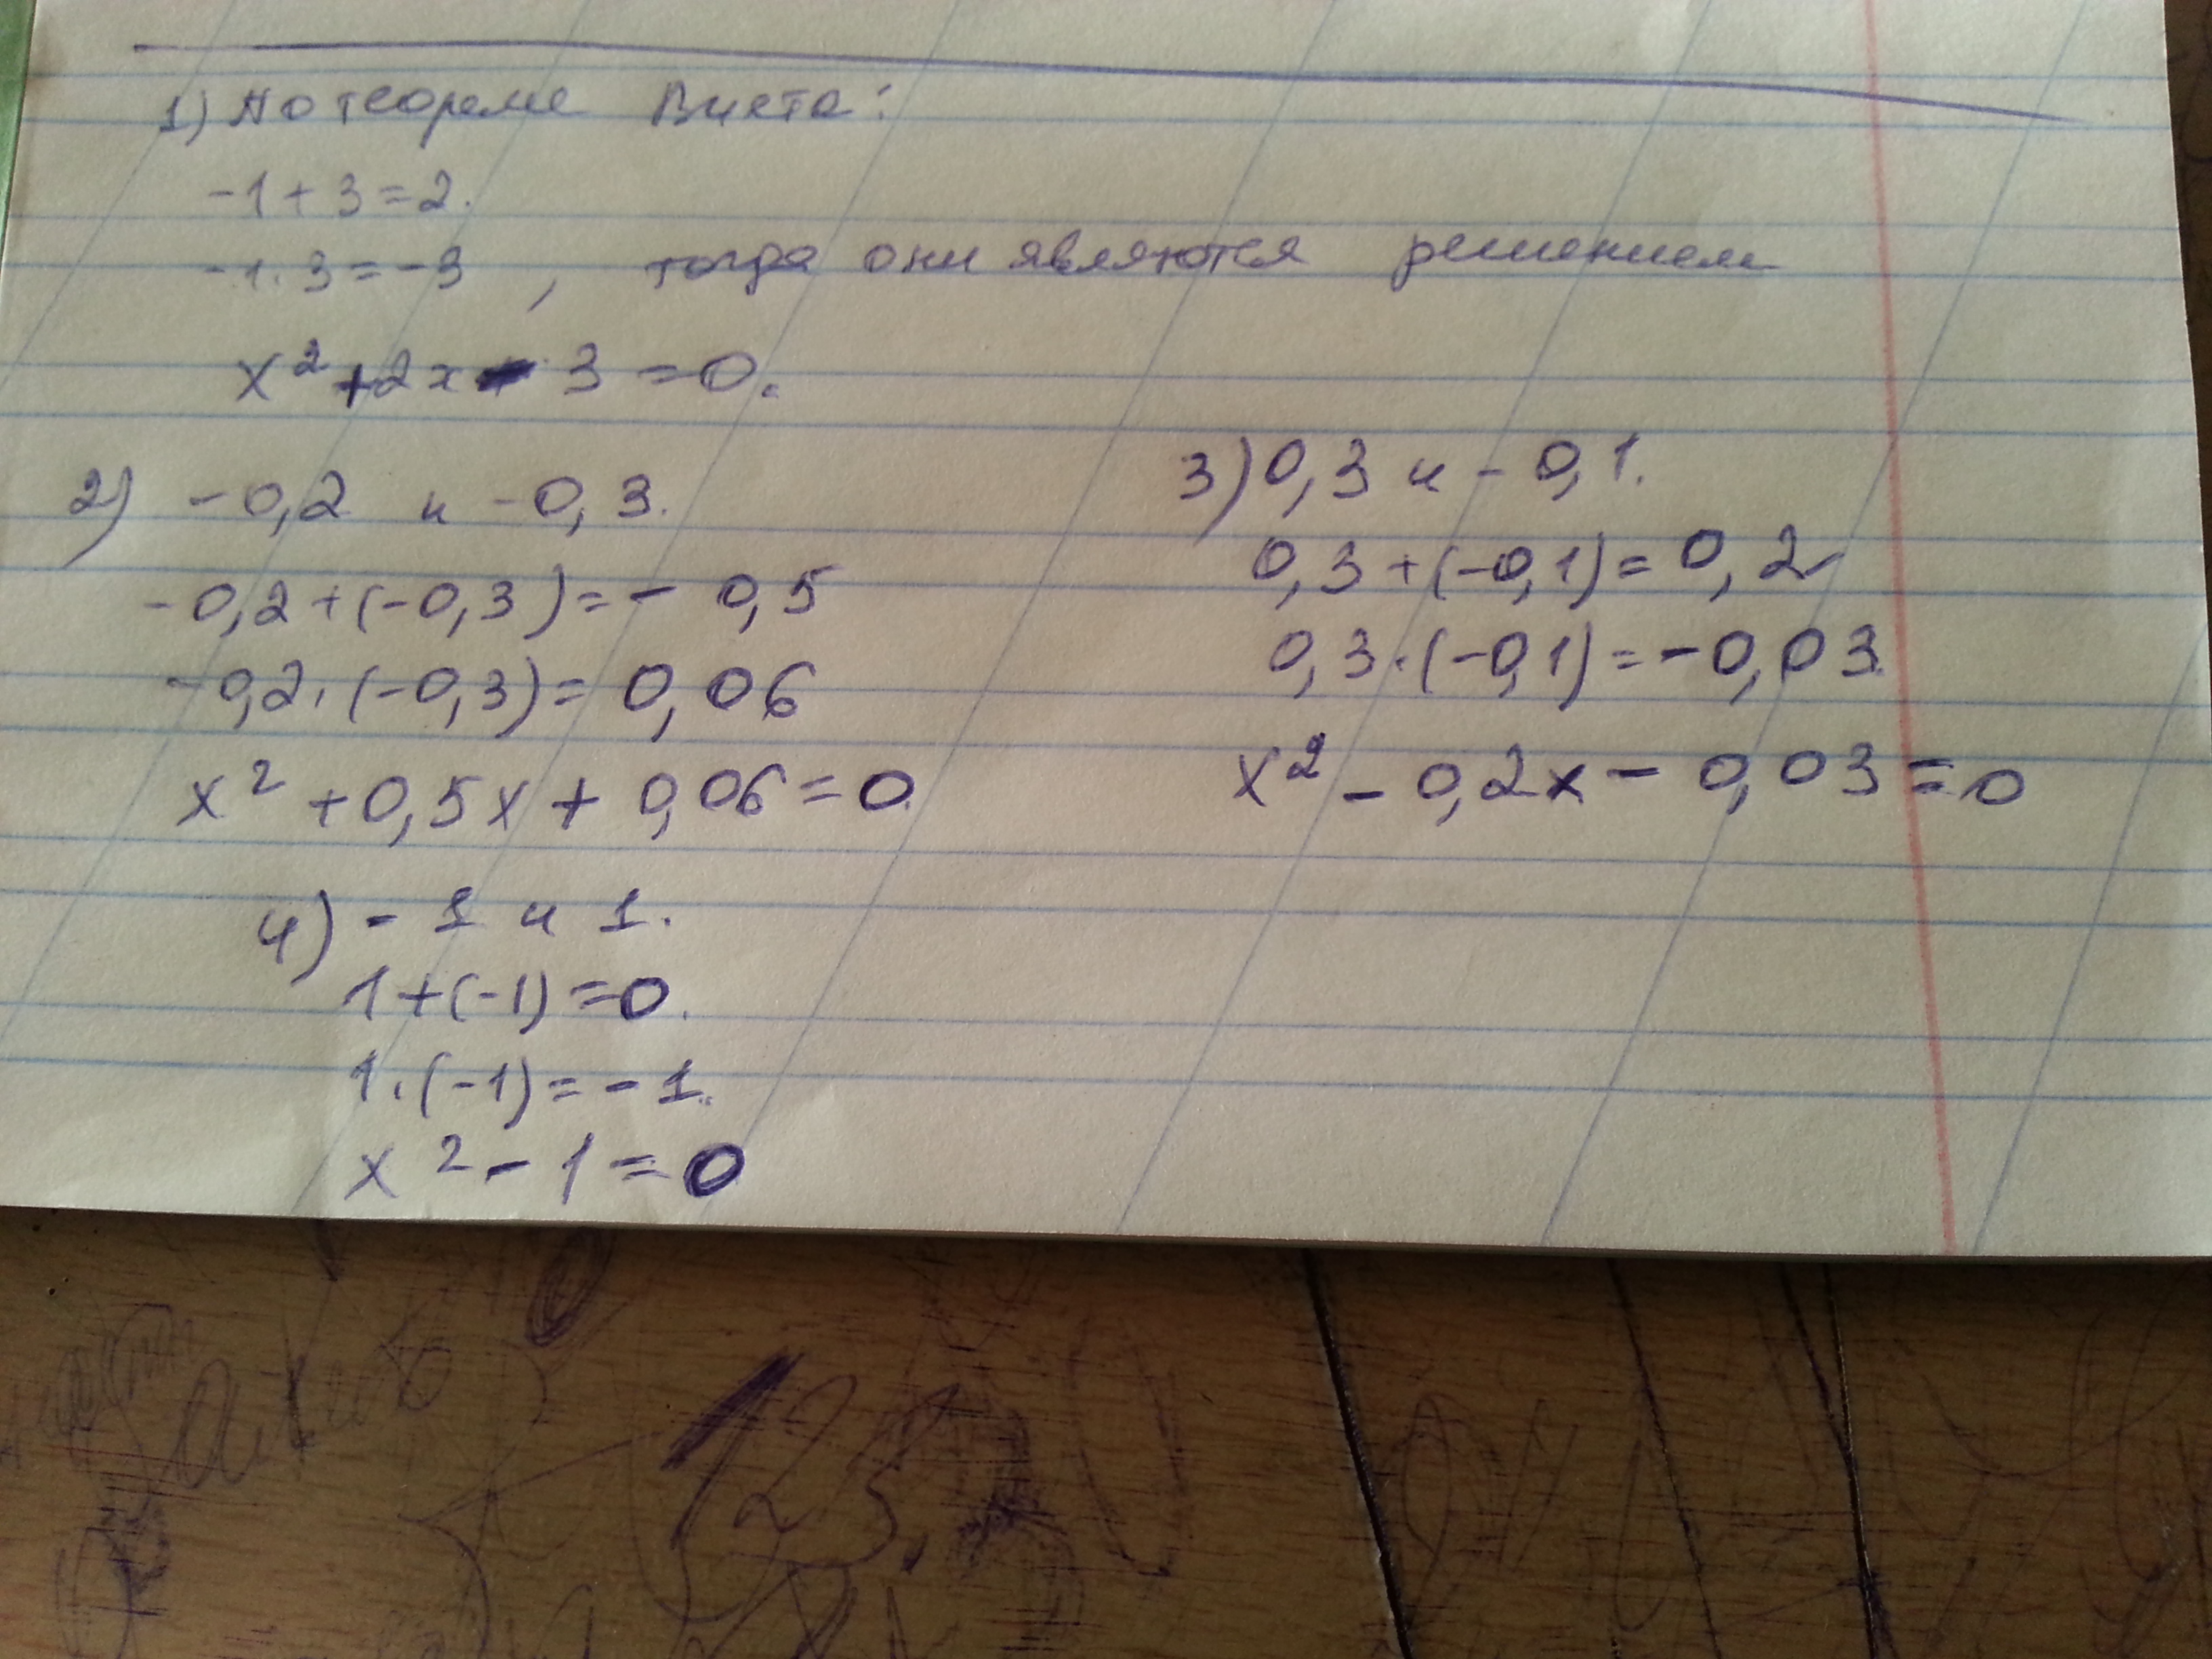 1) По теореме Виета:
-1+3=2.
-1·3=-3, тогда они являются решением
x²+2x-3=0.
2) -0,2 и -0,3.
-0,2+(-0,3)=-0,5
-0,2·(-0,3)=0,06
x²+0,5x+0,06=0
3) 0,3 и -0,1.
0,3+(-0,1)=0,2
0,3·(-0,1)=-0,03.
x²-0,2x-0,03=0
4) -1 и 1.
1+(-1)=0.
1·(-1)=-1.
x²-1=0